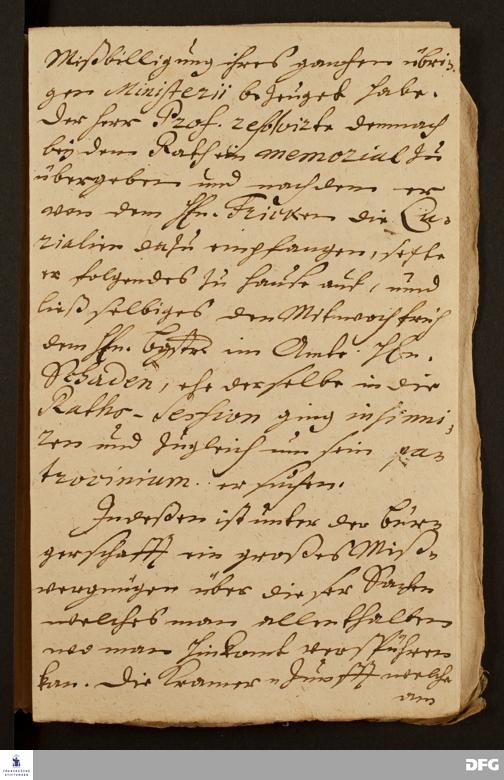 Mißbilligung ihres gantzen übri-
gen Ministerii bezeuget habe.
Der Herr Prof. resolvirte demnach
bey dem Rath ein memorial zu
übergeben und nachdem er
von dem Hn. Fricken die Cu-
rialien dazu empfangen, setzte
er folgendes zu Hause auf, und
ließ selbiges den Mitwoch früh
dem Hn. Bgstr. im Amte Hn.
Schaden, ehe derselbe in die
Raths-Session ging insinui-
ren und zugleich um sein pa-
trocinium ersuchen.
Indeßen ist unter der Bür-
gerschafft ein großes Miß-
vergnügen über dieser Sache
welches man allenthalben
wo man hinkomt verspühren
kan. Die Kramer Zunfft welche
am
FRANCKESCHE
STIFTUNGEN
DFG